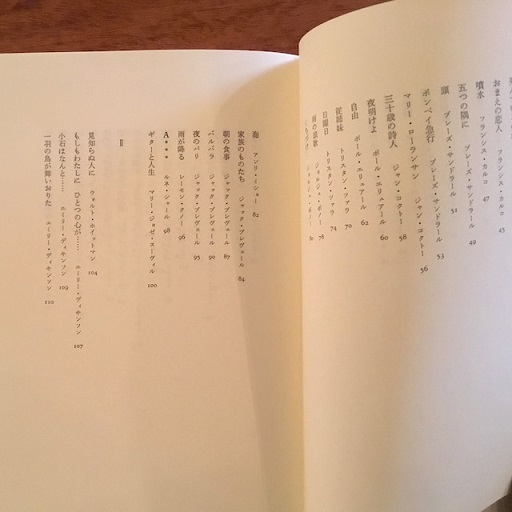 おまえの恋人 フランシス・カルコ 45
噴水 フランシス・カルコ 47
五つの隅に ブレーズ・サンドラール 49
頭 ブレーズ・サンドラール 52
ボンベイ急行 ブレーズ・サンドラール 53
マリー・ローランサン ジャン・コクトー 56
三十歳の詩人 ジャン・コクトー 58
夜明けよ ポール・エリュアール 60
自由 ポール・エリュアール 62
従姉妹 トリスタン・ツァラ 70
日曜日 トリスタン・ツァラ 74
雨の哀歌 ジョルジュ・ 78
海 アンリ・ミショー 82
家族のものたち ジャック・プレヴェール 84
朝の食事 ジャック・プレヴェール 87
バルバラ ジャック・プレヴェール 90
夜のパリ ジャック・プレヴェール 95
雨が降る レーモン・クノー 96
A*** ルネ・シャール 98
ギターと人生 マリー・ジョゼ・ヌーヴィル 100
Ⅱ
見知らぬ人に ウォルト・ホイットマン 104
もしもわたしに ひとつの心が…… エミリー・ディキンソン 107
小石はなんと…… エミリー・ディキンソン 109
一羽の鳥が舞いおりた エミリー・ディキンソン 110